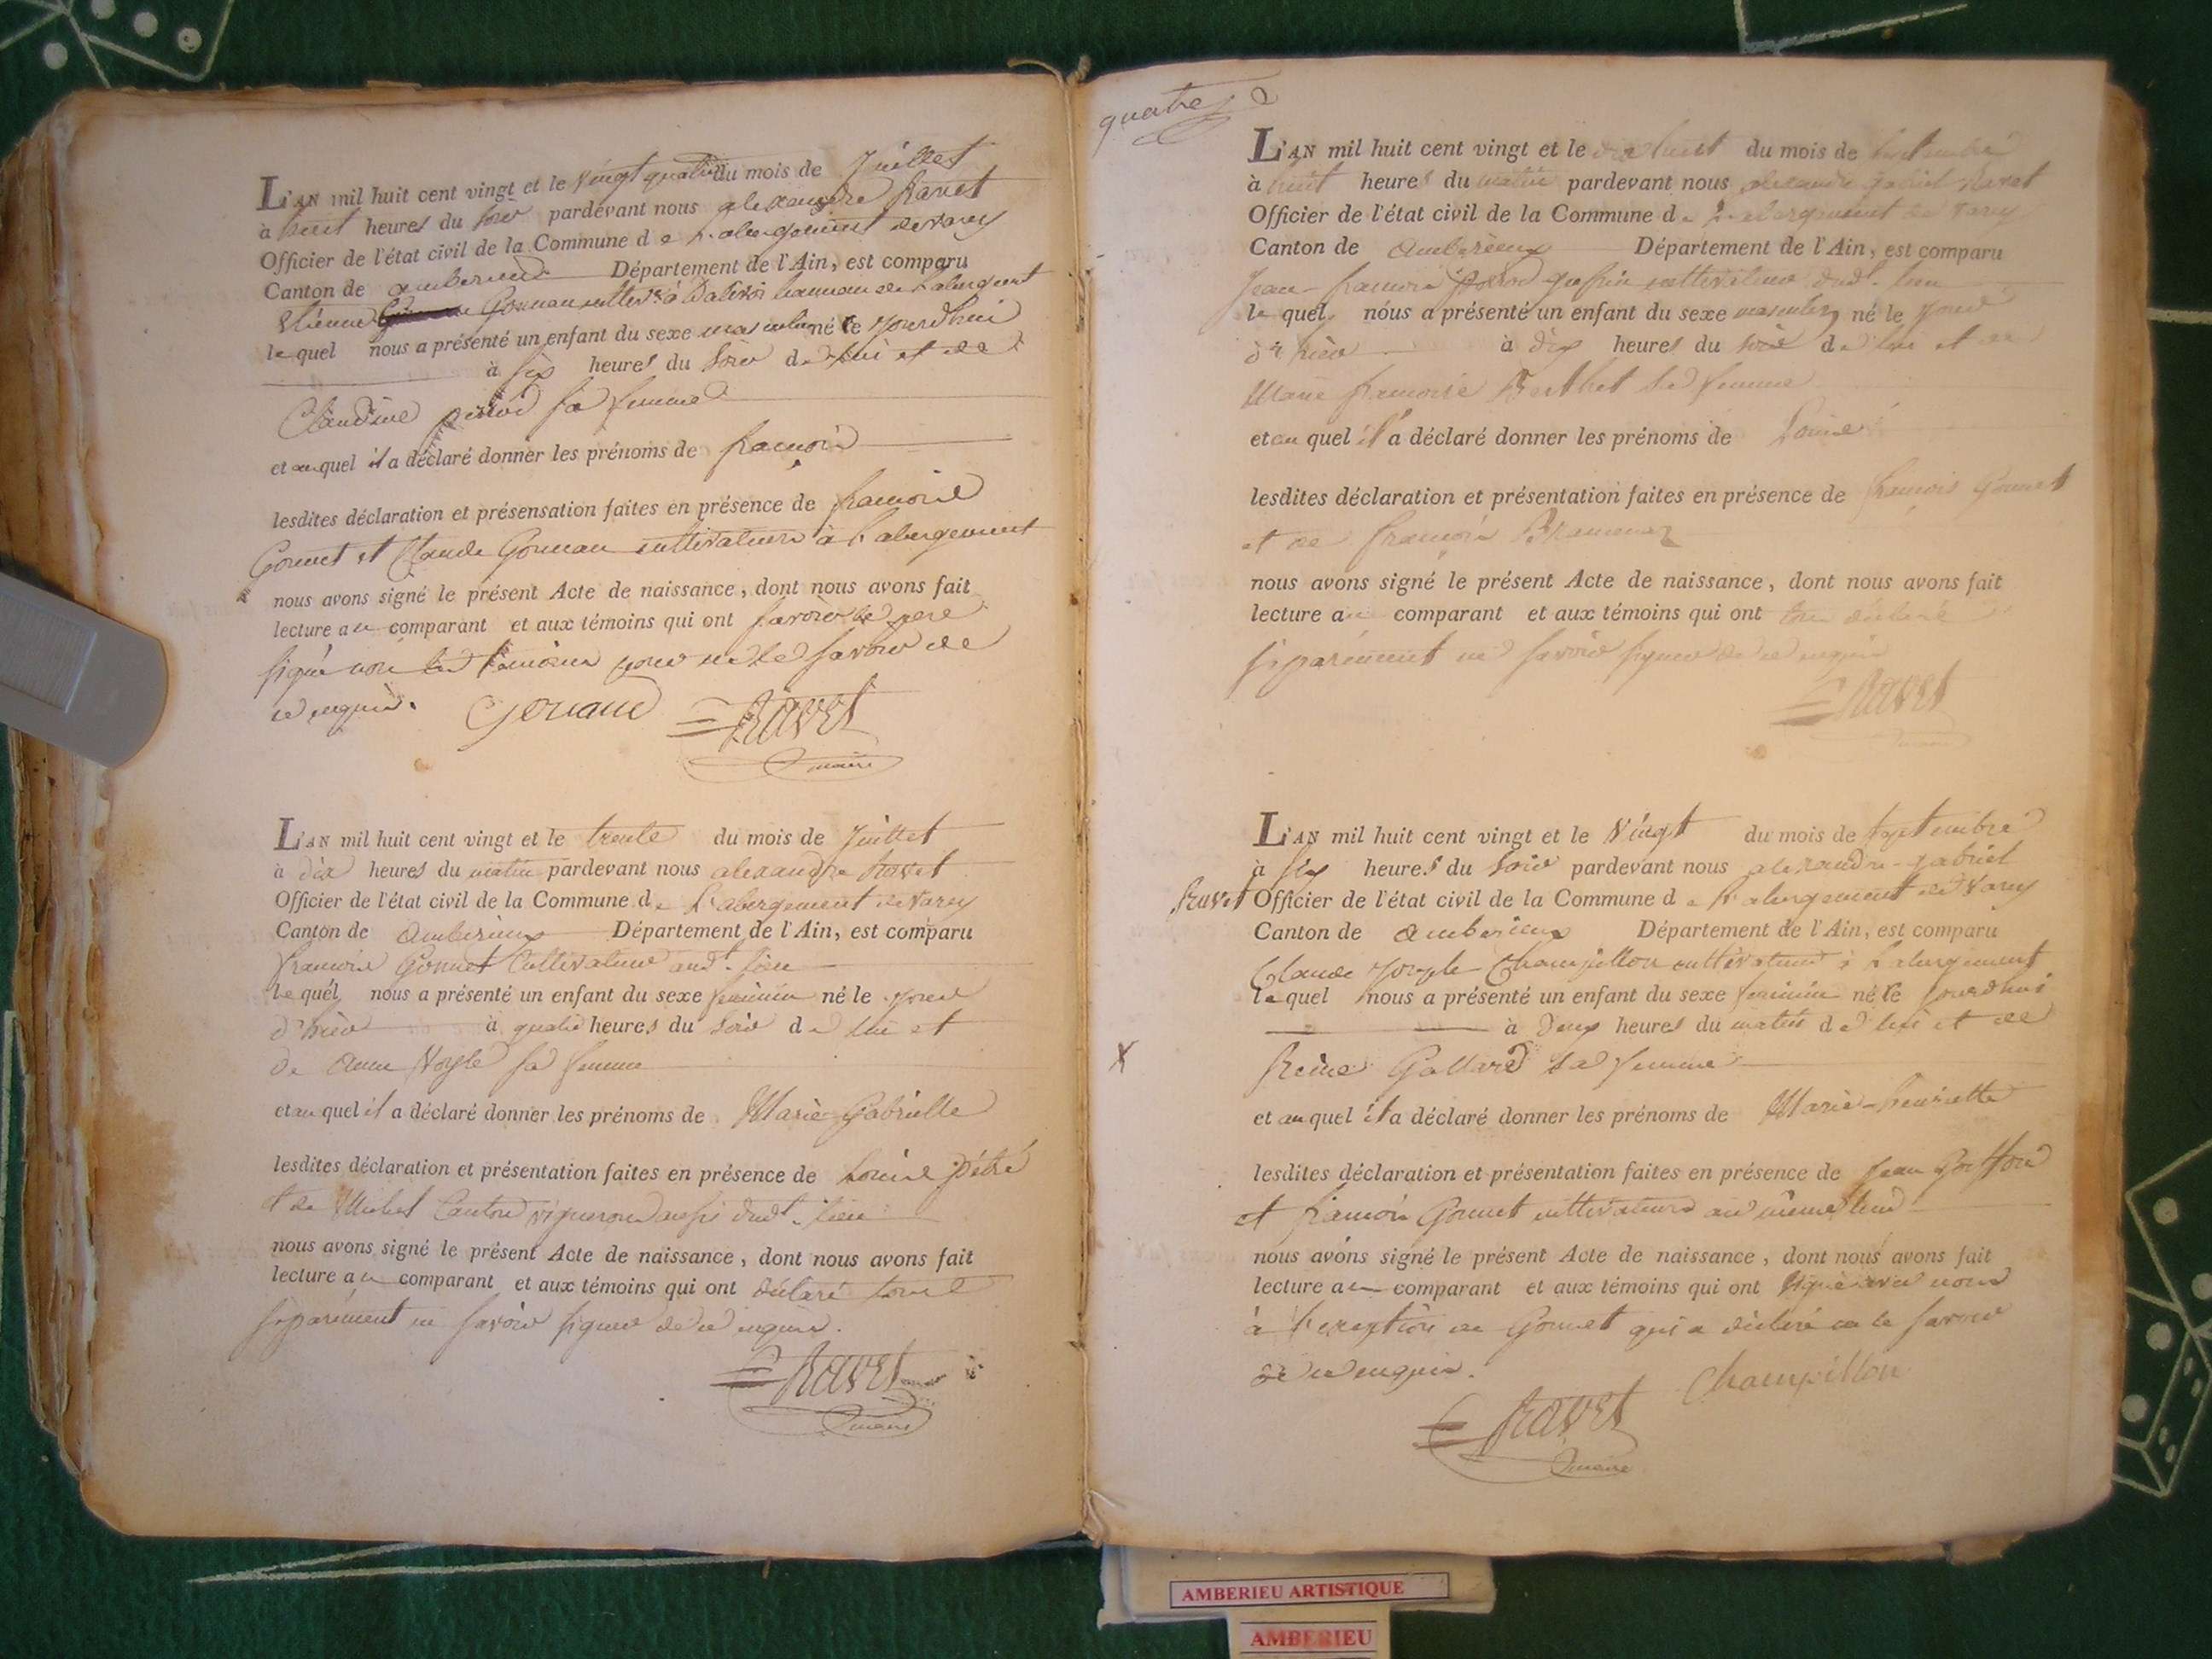 L'AN mil huit cent vingt et le vingt quatre du mois de Juillet
à huit heures du soir pardevant nous alexandre Ravet
Officier de l'état civil de la Commune de L'abergement de varey
Canton de amberieux Département de l'Ain, est comparu
Etienne Gonnan à hameau de L'abergement
lequel nous a présenté un enfant du sexe masculin né le jourdhui
à six heures du soir de lui et de
Claudine sa femme
et auquel il a déclaré donner les prénoms de françois
lesdites déclaration et présensation faites en présence de françois
Gonnet et Claude Gonnan cultivateurs à L'abergement
nous avons signé le présent Acte de naissance, dont nous avons fait
lecture au comparant et aux témoins qui ont savoir le pere
signé non les témoins pour ne le savoir de
ce enquis. Ravet
maire
L'AN mil huit cent vingt et le trente du mois de Juillet
à dix heures du matin pardevant nous alexandre Ravet
Officier de l'état civil de la Commune de L'abergement de Varey
Canton de Amberieux Département de l'Ain, est comparu
françois Gonnet Cultivateur aud.t lieu
lequel nous a présenté un enfant du sexe feminin né le jour
d'hier à quatre heures du soir de lui et
de Anne sa femme
et auquel il a déclaré donner les prénoms de Marie Gabrielle
lesdites déclaration et présentation faites en présence de Louis
et de Michel vignerons dud.t lieu
nous avons signé le présent Acte de naissance, dont nous avons fait
lecture au comparant et aux témoins qui ont déclaré tous
séparément ne savoir signer de ce enquis.
Ravet
maire
quatre
L'AN mil huit cent vingt et le dix huit du mois de Septembre
à huit heures du matin pardevant nous alexandre gabriel Ravet
Officier de l'état civil de la Commune de L'abergement de Varey
Canton de Amberieux Département de l'Ain, est comparu
Jean françois cultivateur dud.t lieu
lequel nous a présenté un enfant du sexe masculin né le jour
d'hier à dix heures du soir de lui et de
Marie françoise Berthet sa femme
et au quel il a déclaré donner les prénoms de Louis
lesdites déclaration et présentation faites en présence de françois Gonnet
et de françois
nous avons signé le présent Acte de naissance, dont nous avons fait
lecture au comparant et aux témoins qui ont tous déclaré
séparément ne savoir signer de ce enquis
Ravet
maire
L'AN mil huit cent vingt et le Vingt du mois de Septembre
à six heures du soir pardevant nous alexandre-gabriel
Ravet Officier de l'état civil de la Commune de L'abergement de Varey
Canton de amberieux Département de l'Ain, est comparu
Claude Joseph Champillon cultivateur à L'abergement
lequel nous a présenté un enfant du sexe feminin né le jourdhui
à deux heures du matin de lui et de
X Reine Gallard sa femme
et au quel il a déclaré donner les prénoms de Marie-henriette
lesdites déclaration et présentation faites en présence de Jean
et françois Gonnet cultivateurs au même lieu
nous avons signé le présent Acte de naissance, dont nous avons fait
lecture au comparant et aux témoins qui ont signé avec nous
à l'exception de Gonnet qui a déclaré ne le savoir
de ce enquis. Champillon
Ravet
maire
AMBERIEU ARTISTIQUE
AMBERIEU